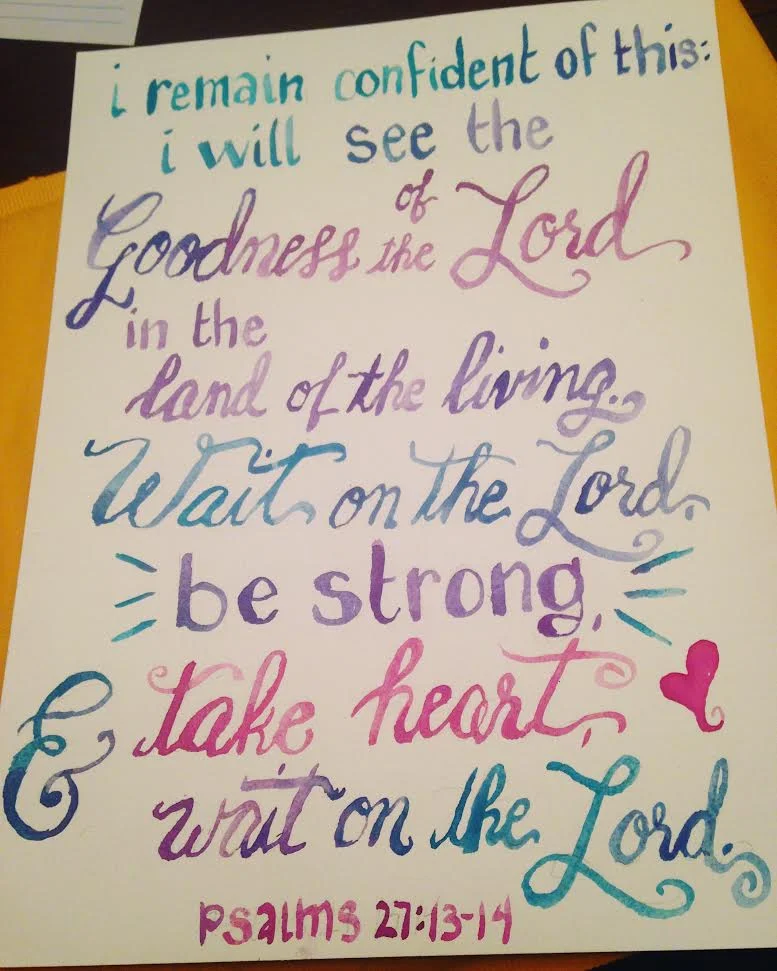 i remain confident of this:
i will see the
Goodness of the Lord
in the
land of the living.
Wait on the Lord,
be strong,
& take heart,
wait on the Lord.
Psalms 27:13-14